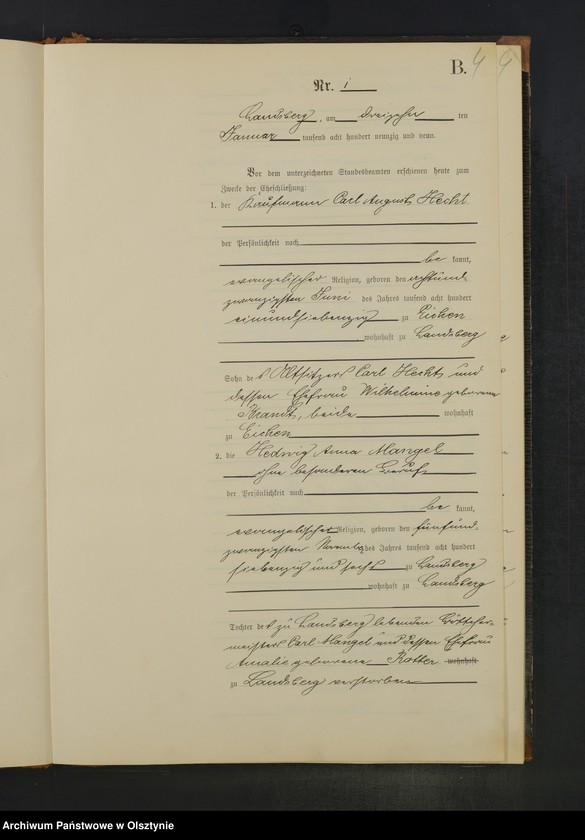 B. 4
Nr. 1
Landsberg, am dreizehn ten
Januar tausend acht hundert neunzig und neun.
Vor dem unterzeichneten Standesbeamten erschienen heute zum
Zwecke der Eheschließung:
1. der Kaufmann Carl August Hecht
der Persönlichkeit nach
be kannt,
evangelischer Religion, geboren den achtund-
zwanzigsten Juni des Jahres tausend acht hundert
einundsiebenzig zu Eichen
, wohnhaft zu Landsberg
Sohn des Altsitzers Carl Hecht und
dessen Ehefrau Wilhelmine geborene
Brandt, beide wohnhaft
zu Eichen
2. die Hedwig Anna Mangel
ohne besonderen Beruf
der Persönlichkeit nach
be kannt,
evangelischer Religion, geboren den fünfund-
zwanzigsten November des Jahres tausend acht hundert
siebenzig und sechs zu Landsberg
wohnhaft zu Landsberg
Tochter des zu Landsberg lebenden Böttcher-
meisters Carl Mangel und dessen Ehefrau
Amalie geborene Rotter wohnhaft
zu Landsberg verstorben
Archiwum Państwowe w Olsztynie